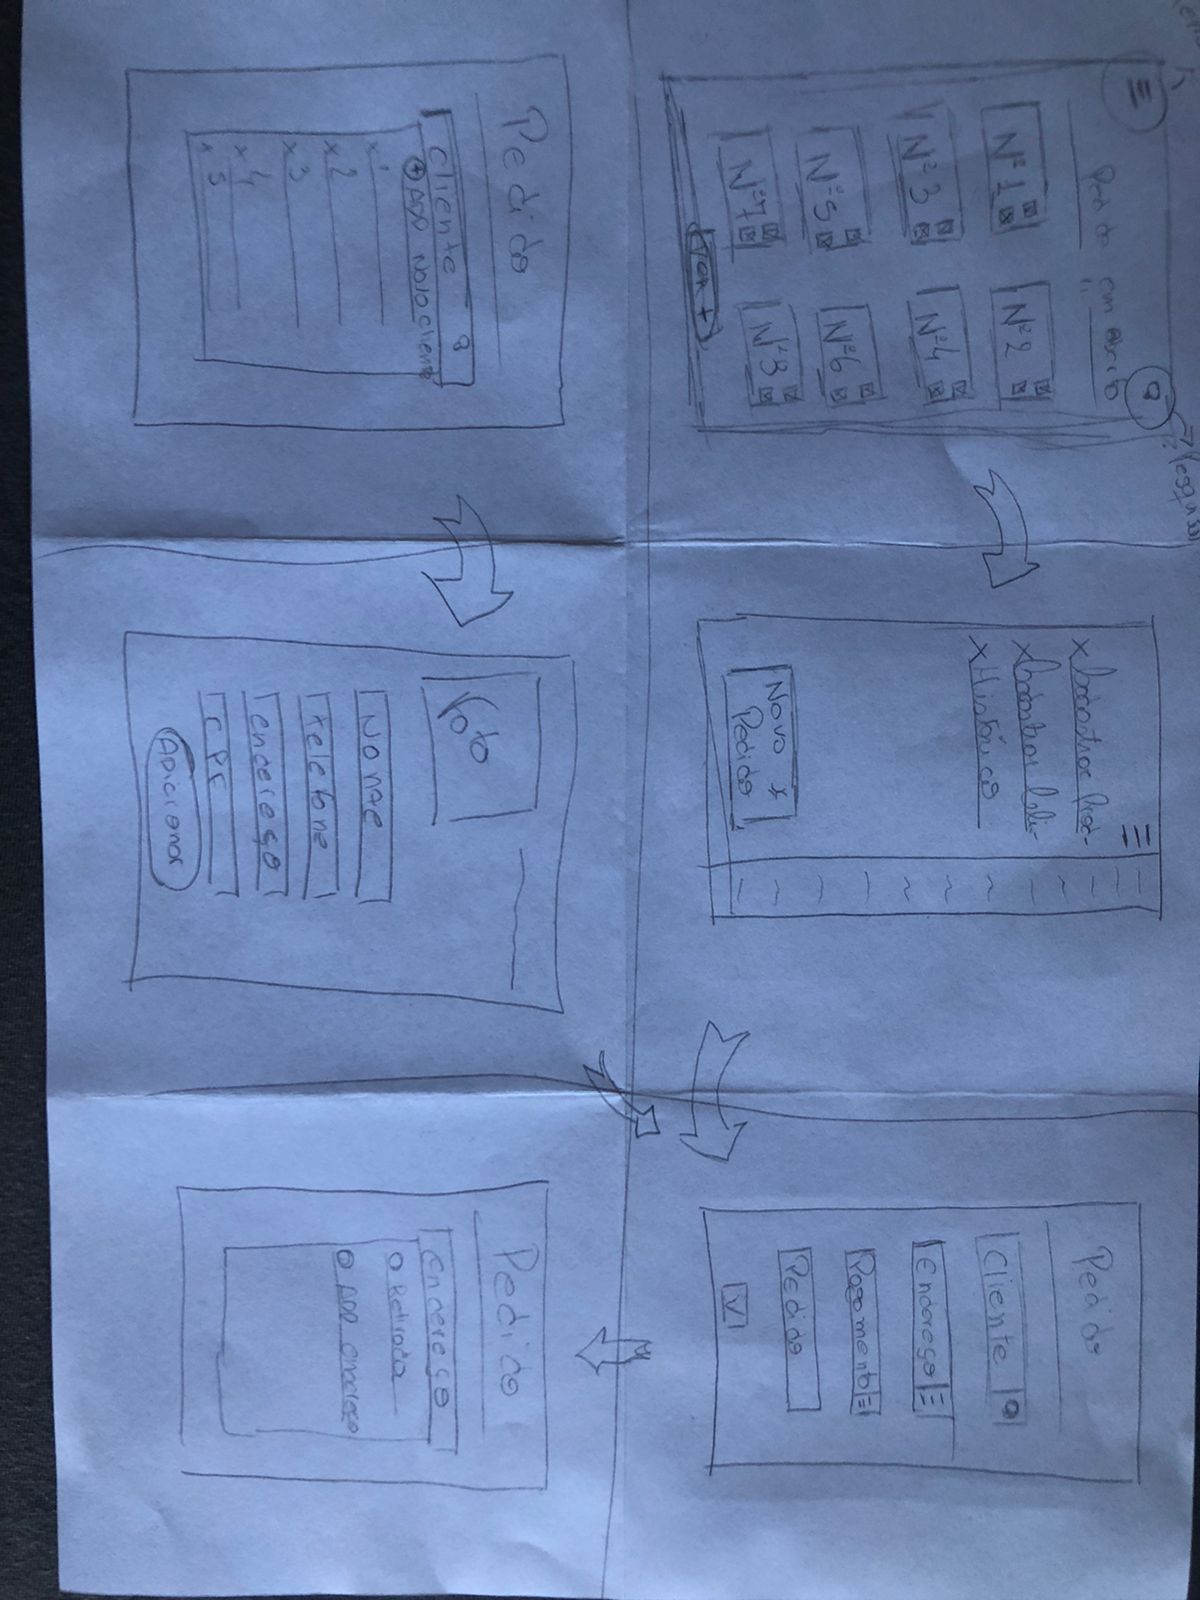 Pesquisa
Pedido em aberto
Nº 1
Nº 2
Nº 3
Nº 4
Nº 5
Nº 6
Nº 7
Nº 8
Ver +
x Cadastrar Prod-
x Cadastrar Cli-
x Histórico
Novo
Pedido
Pedido
Cliente
Endereço
Pagamento
Pedido
V
Pedido
Cliente
+ ADD Novo cliente
x 1
x 2
x 3
x 4
x 5
Foto
Nome
telefone
endereço
CPF
Adicionar
Pedido
endereço
Retirada
ADD endereço